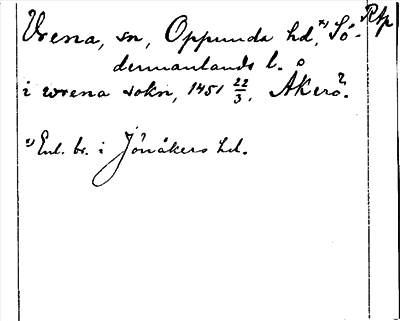 Vrena, sn, Oppunda hd,*) Sö- Rtp
dermanlands l.
i wrena sokn, 1451 22/3. Åkerö?.
*) Enl. br. i Jönåkers hd.